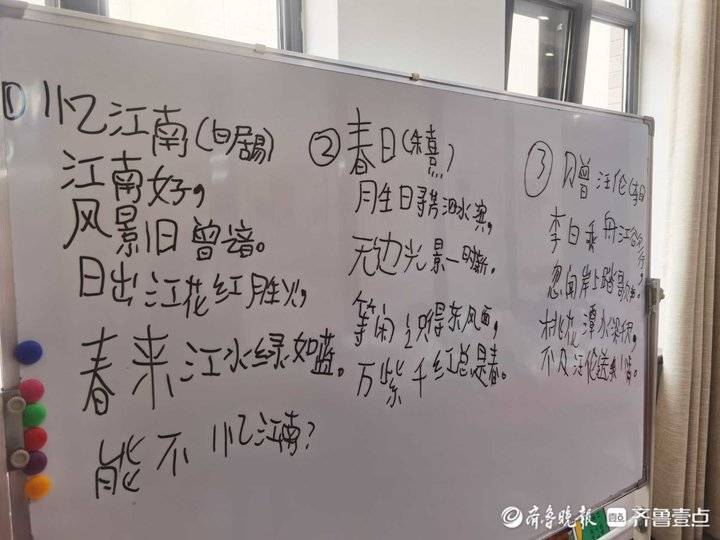 ① 忆江南(白居易)
江南好,
风景旧曾谙。
日出江花红胜火,
春来江水绿如蓝。
能不忆江南?
② 春日(朱熹)
胜日寻芳泗水滨,
无边光景一时新。
等闲识得东风面,
万紫千红总是春。
③ 赠汪伦(李白
李白乘舟江
忽闻岸上踏歌声。
桃花潭水深
不及汪伦送我情。
齐鲁晚报 壹点 齐鲁壹点